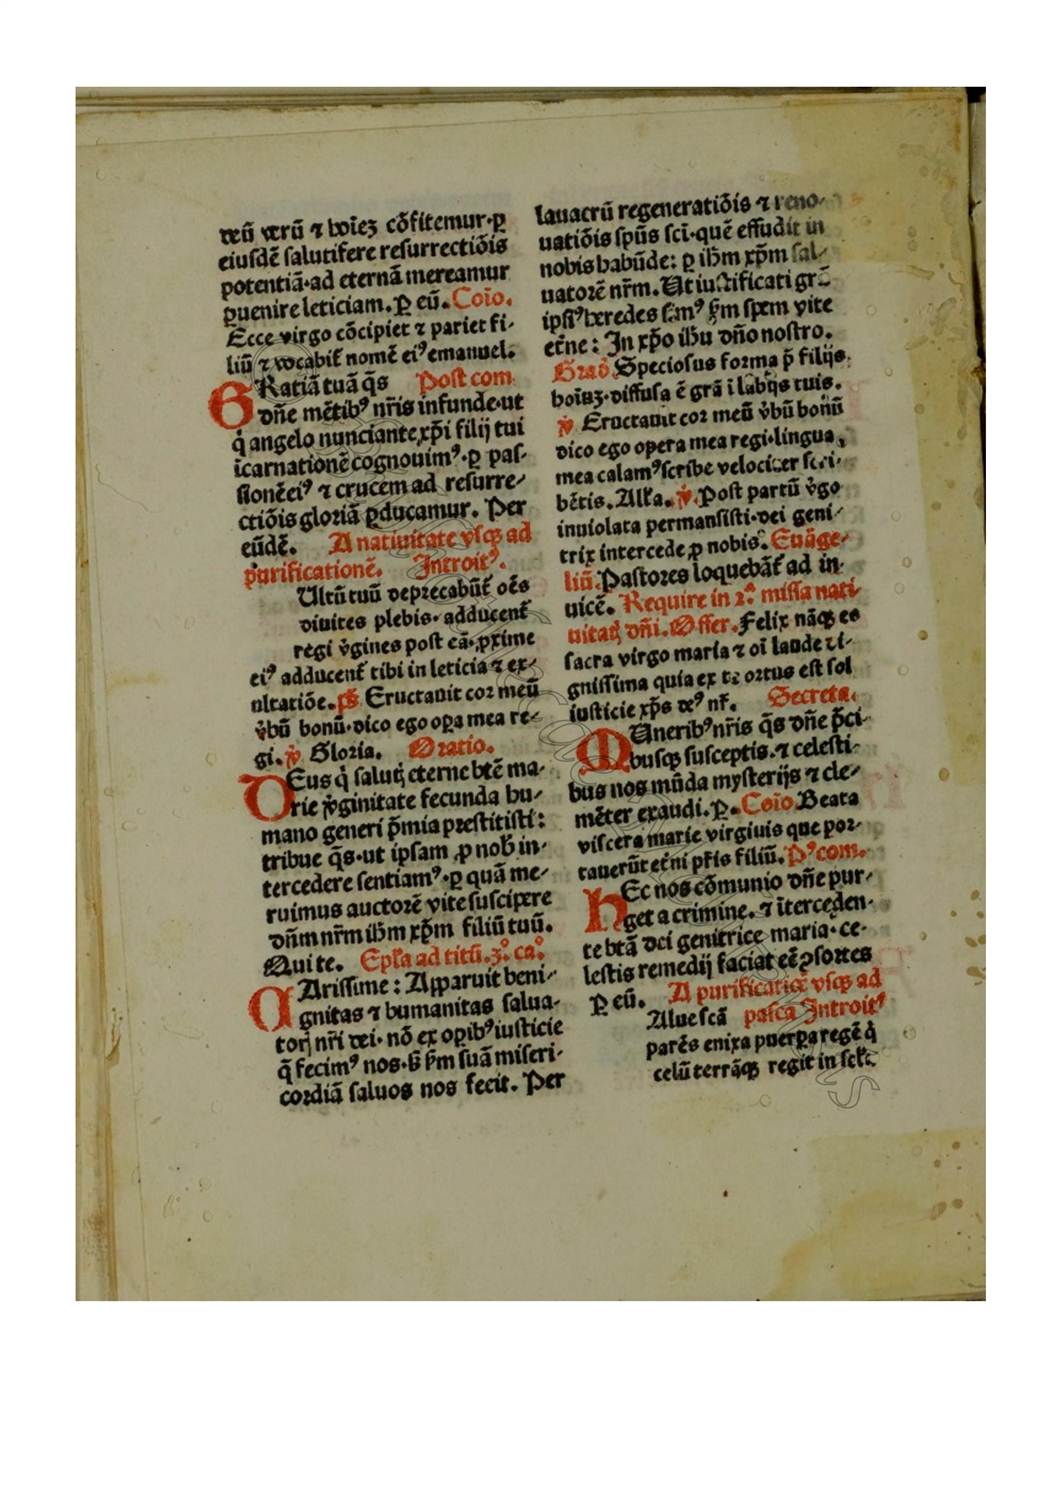 deū verū ⁊ hoīeꝫ cōfitemur·ꝑ
eiusdē salutifere resurrectiōis
potentiā·ad eternā mereamur
ꝑuenire leticiam. Ꝑ eū. Coīo.
Ecce virgo cōcipiet ⁊ pariet fi-
liū ⁊ vocabit̄ nomē eiꝰ emanuel.
GRatiā tuā q̄s Post com
dn̄e mētibꝰ nr̄is infunde·ut
q̇ angelo nunciante xp̄i filij tui
īcarnationē cognouimꝰ·ꝑ pas-
sionē eiꝰ ⁊ crucem ad resurre-
ctiōis gloriā ꝑducamur. Per
eūdē. A natiuitate vsqꝫ ad
purificationē. Introitꝰ.
Ultū tuū deprecabūt̄ oēs
diuites plebis· adducent̄
regi v̇gines post eā·ꝓxime
eiꝰ adducent̄ tibi in leticia ⁊ ex-
ultatiōe. ps̄ Eructauit cor meū
v̇bū bonū·dico ego oꝑa mea re-
gi. v̇ Gloria. Oratio.
DEus q̇ salutꝭ eterne btē ma-
rie v̇ginitate fecunda hu-
mano generi p̄mia prestitisti:
tribue q̄s·ut ipsam ꝓ nob̄ in-
tercedere sentiamꝰ·ꝑ quā me-
ruimus auctorē vite suscipere
dn̄m nr̄m ih̄m xp̄m filiū tuū.
Qui te. Ep̄la ad titū. 3.° ca.°
CArissime: Apparuit beni-
gnitas ⁊ humanitas salua-
torꝭ nr̄i dei· nō ex oꝑibꝰ iusticie
q̄ fecimꝰ nos·s̄ s̄m suā miseri-
cordiā saluos nos fecit. Per
lauacrū regeneratiōis ⁊ reno-
uatiōis sp̄us sc̄i·quē effudit in
nobis habūde: ꝑ ih̄m xp̄m sal-
uatorē nr̄m. Ut iustificati gr̄a
ipsiꝰ heredes simꝰ s̄m spem vite
et̄ne: In xp̄o ih̄u dn̄o nostro.
Grad̄. Speciosus forma p̄ filijs
hoīuꝫ·diffusa ē grā ī labijs tuis.
v̇ Eructauit cor meū v̇bū bonū
dico ego opera mea regi·lingua
mea calamꝰ scribe velociter scri-
bētis. All̄a. v̇. Post partū v̇go
inuiolata permansisti·dei geni-
trix intercede ꝓ nobis. Euāge-
liū. Pastores loquebāt̄ ad in-
uicē. Require in 2.ª missa nati-
uitatꝭ dn̄i. Offer. Felix nāqꝫ es
sacra virgo maria ⁊ oī laude di-
gnissima quia ex te ortus est sol
iusticie xp̄s deꝰ nr̄. Secreta.
MUneribꝰ nr̄is q̄s dn̄e p̄ci-
busqꝫ susceptis.⁊ celesti-
bus nos mūda mysterijs ⁊ cle-
mēter exaudi. Ꝑ. Coīo Beata
viscera marie virginis que por-
tauerūt et̄ni pr̄is filiū. Pꝰcom.
HEc nos cōmunio dn̄e pur-
get a crimine. ⁊ īterceden-
te btā dei genitrice maria· ce-
lestis remedij faciat eē ꝯsortes
Ꝑ eū. A purificatiōe vsqꝫ ad
Alue scā pasca Introitꝰ
parēs enixa puerꝑa regē q̇
celū terrāqꝫ regit in sc̄l̄a